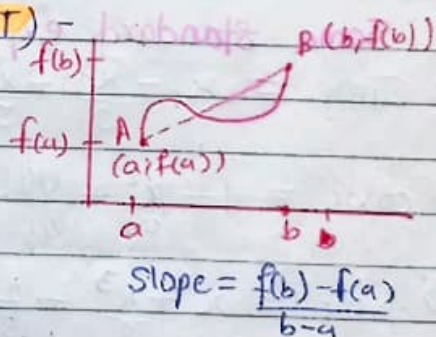 T) -
f(b)
B (b, f(b))
f(a)
A
(a, f(a))
a
b
b
Slope = f(b) - f(a)
b - a